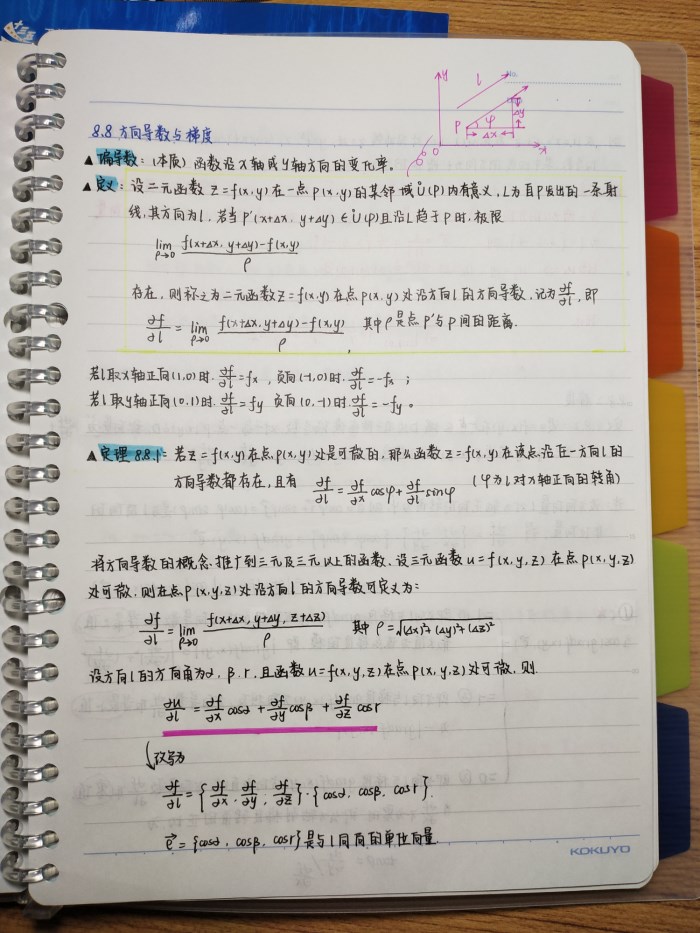 y
l
P
φ
Δy
Δx
x
O
8.8 方向导数与梯度
▲ 偏导数：(本质) 函数沿X轴或y轴方向的变化率。
▲ 定义：设二元函数 z=f(x,y) 在一点 P(x,y) 的某邻域 Ů(P) 内有意义，L为自P出发的一条射
线，其方向为l，若当 P'(x+Δx, y+Δy)∈Ů(P) 且沿L趋于P时，极限
lim ρ→0 [f(x+Δx, y+Δy)-f(x,y)]/ρ
存在，则称之为二元函数 z=f(x,y) 在点 P(x,y) 处沿方向l的方向导数，记为 ∂f/∂l，即
∂f/∂l = lim ρ→0 [f(x+Δx, y+Δy)-f(x,y)]/ρ 其中ρ是点P'与P间的距离.
若l取x轴正向(1,0)时, ∂f/∂l=fx，负向(-1,0)时, ∂f/∂l=-fx；
若l取y轴正向(0,1)时, ∂f/∂l=fy 负向(0,-1)时, ∂f/∂l=-fy。
▲ 定理 8.8.1：若 z=f(x,y) 在点 P(x,y) 处是可微的，那么函数 z=f(x,y) 在该点沿任一方向l的
方向导数都存在，且有 ∂f/∂l = ∂f/∂x cosφ + ∂f/∂l sinφ (φ为l对x轴正向的转角)
将方向导数的概念推广到三元及三元以上的函数、设三元函数 u=f(x,y,z) 在点 P(x,y,z)
处可微，则在点 P(x,y,z) 处沿方向l的方向导数可定义为：
∂f/∂l = lim ρ→0 f(x+Δx, y+Δy, z+Δz)/ρ 其中 ρ=√(Δx)²+(Δy)²+(Δz)²
设方向l的方向角为α, β, r，且函数 u=f(x,y,z) 在点 P(x,y,z) 处可微，则
∂u/∂l = ∂f/∂x cosα + ∂f/∂y cosβ + ∂f/∂z cosr
改写为
∂f/∂l = {∂f/∂x, ∂f/∂y, ∂f/∂z}·{cosα, cosβ, cosr}.
e⃗ = {cosα, cosβ, cosr} 是与l同向的单位向量.
KOKUYO